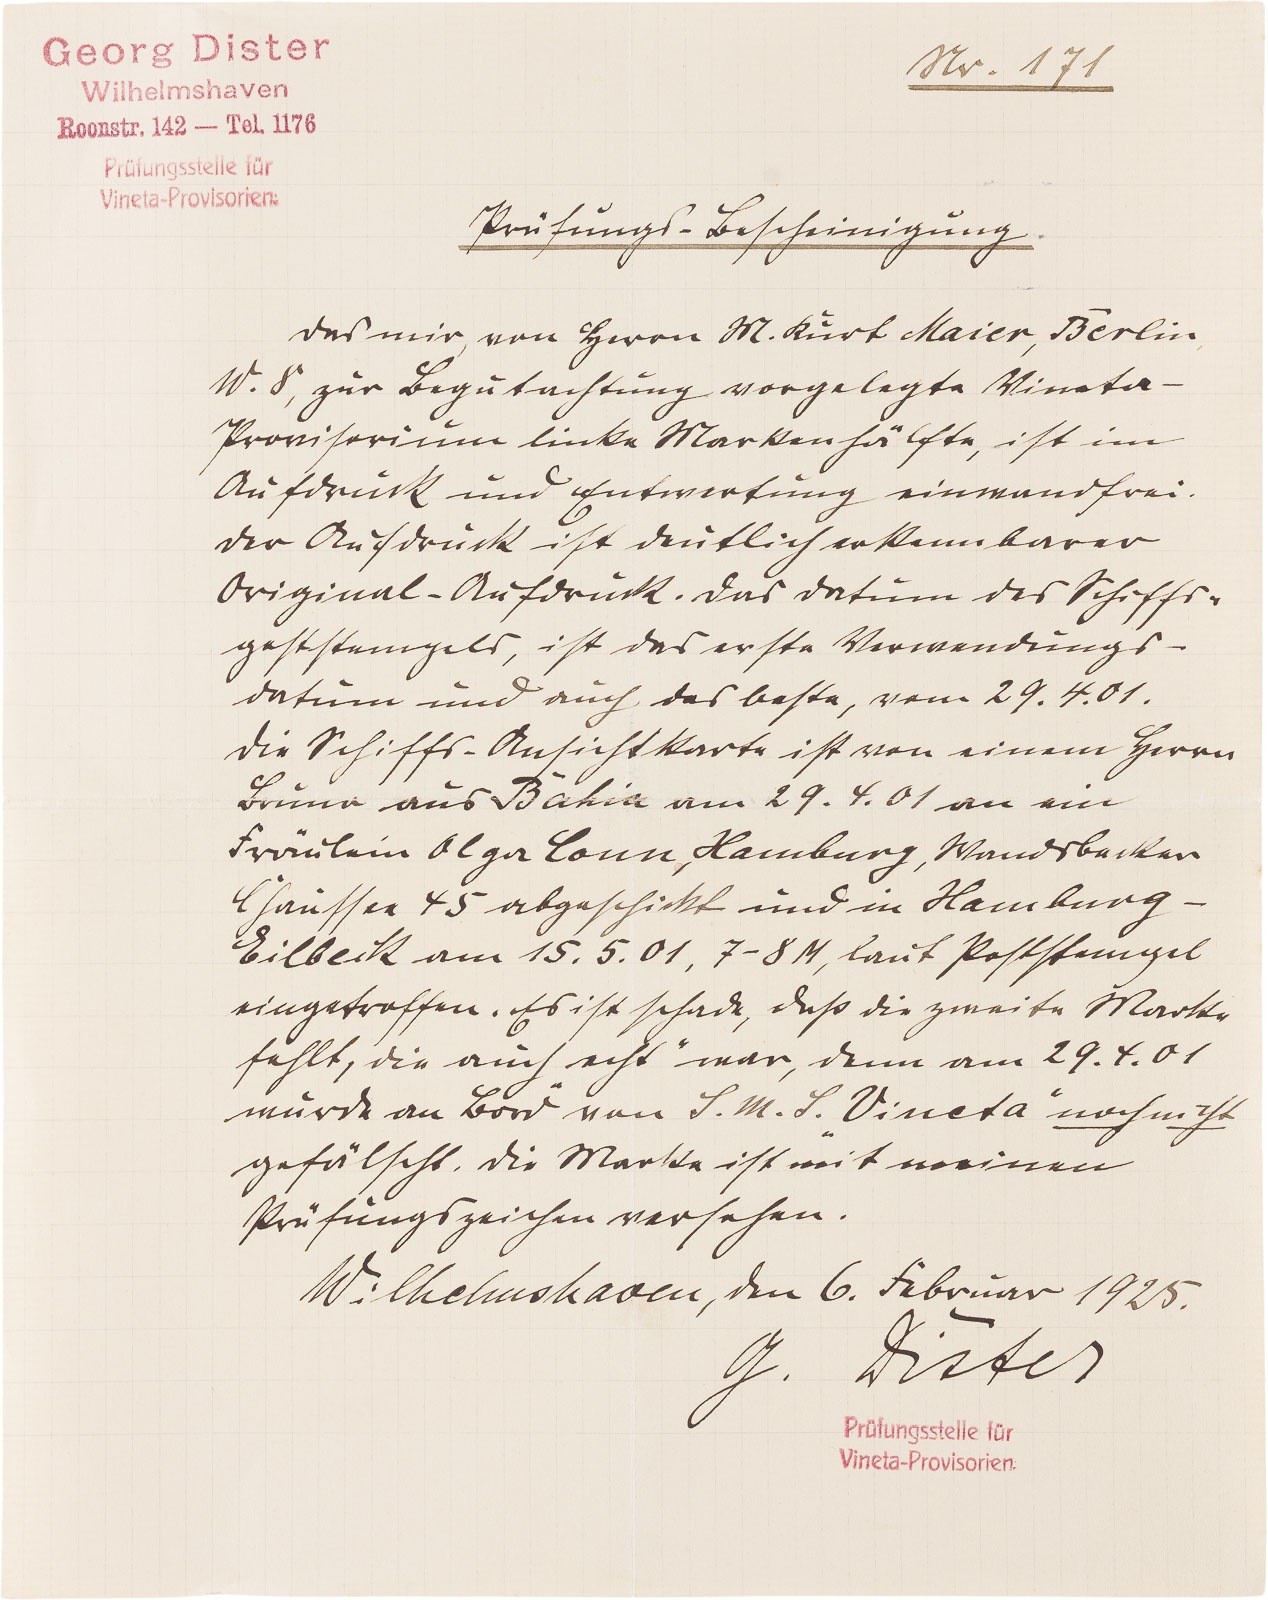 Georg Dister
Wilhelmshaven
Roonstr. 142 — Tel. 1176
Prüfungsstelle für
Vineta-Provisorien.
Nr. 171
Prüfungs-Bescheinigung.
Das mir, von Herrn M. Kurt Maier, Berlin,
W. 8, zur Begutachtung vorgelegte Vineta-
Provisorium linke Markenhälfte, ist im
Aufdruck und Entwertung einwandfrei.
Der Aufdruck ist deutlich erkennbarer
Original-Aufdruck. Das Datum des Schiffs-
poststempels, ist das erste Verwendungs-
datum und auch das beste, vom 29.4.01.
Die Schiffs-Ansichtkarte ist von einem Herrn
Bruno aus Bahia am 29.4.01 an ein
Fräulein Olga Conn, Hamburg, Wandsbecker
Chaussee 45 abgeschickt und in Hamburg-
Eilbeck am 15.5.01, 7-8 N, laut Poststempel
eingetroffen. Es ist schade, daß die zweite Marke
fehlt, die auch echt war, denn am 29.4.01
wurde an Bord von S.M.S. "Vineta" noch nicht
gefälscht. Die Marke ist mit meinen
Prüfungszeichen versehen.
Wilhelmshaven, den 6. Februar 1925.
G. Dister
Prüfungsstelle für
Vineta-Provisorien.